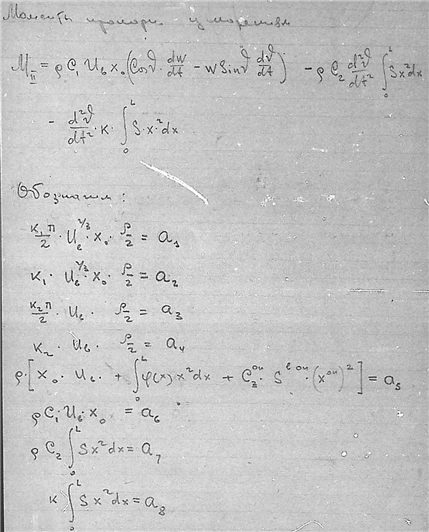 Моменты пропорц. ускорениям
M_II = ρ C₁ U_в x₀ (Cosϑ · dw/dt − w Sinϑ dϑ/dt) − ρ C₂ d²ϑ/dt² ∫₀ᴸ Sx²dx
− d²ϑ/dt² · к · ∫₀ᴸ S·x²dx
Обозначим:
к₁π/2 · U_в^(2/3) · x₀ · ρ/2 = a₁
к₁ · U_в^(2/3) · x₀ · ρ/2 = a₂
к₂π/2 · U_в · ρ/2 = a₃
к₂ · U_в · ρ/2 = a₄
ρ·[x₀ · U_в · + ∫₀ᴸ φ(x) x²dx + C₂^оп · S^в оп · (x^оп)²] = a₅
ρ C₁ · U_в · x₀ = a₆
ρ C₂ ∫₀ᴸ Sx²dx = a₇
к ∫₀ᴸ Sx²dx = a₈